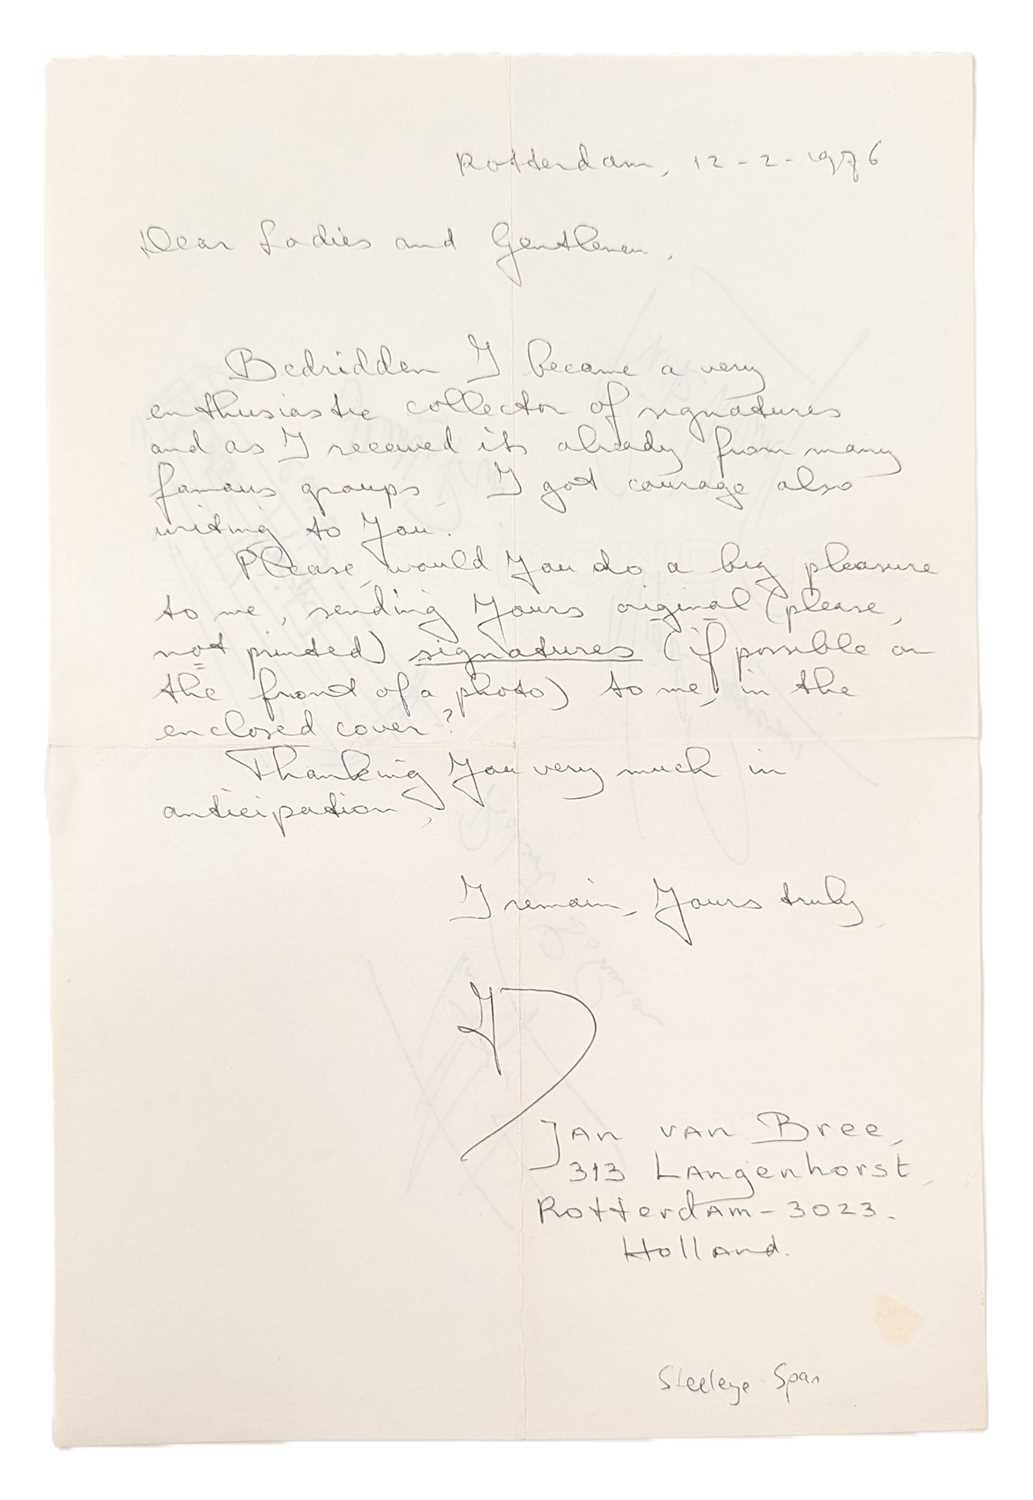 Rotterdam, 12-2-1976
Dear Ladies and Gentlemen,
Bedridden I became a very
enthusiastic collector of signatures
and as I received its already from many
famous groups, I got courage also
writing to You.
Please, would You do a big pleasure
to me, sending Yours original (please,
not printed) signatures (if possible on
the front of a photo) to me, in the
enclosed cover?
Thanking You very much in
anticipation,
I remain, Yours truly,
Jan van Bree,
313 Langenhorst,
Rotterdam-3023.
Holland.
Steeleye Span